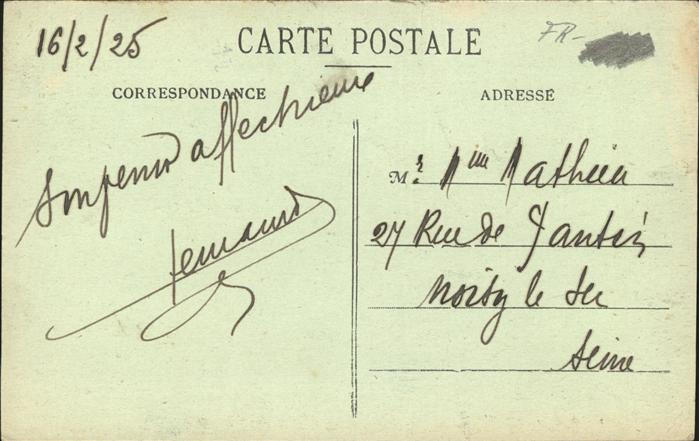 16/2/25
CARTE POSTALE
FR-
CORRESPONDANCE
ADRESSE
Souvenir affectueux
Fernand
M. r Mme Mathieu
27 Rue de
Noisy le Sec
Seine